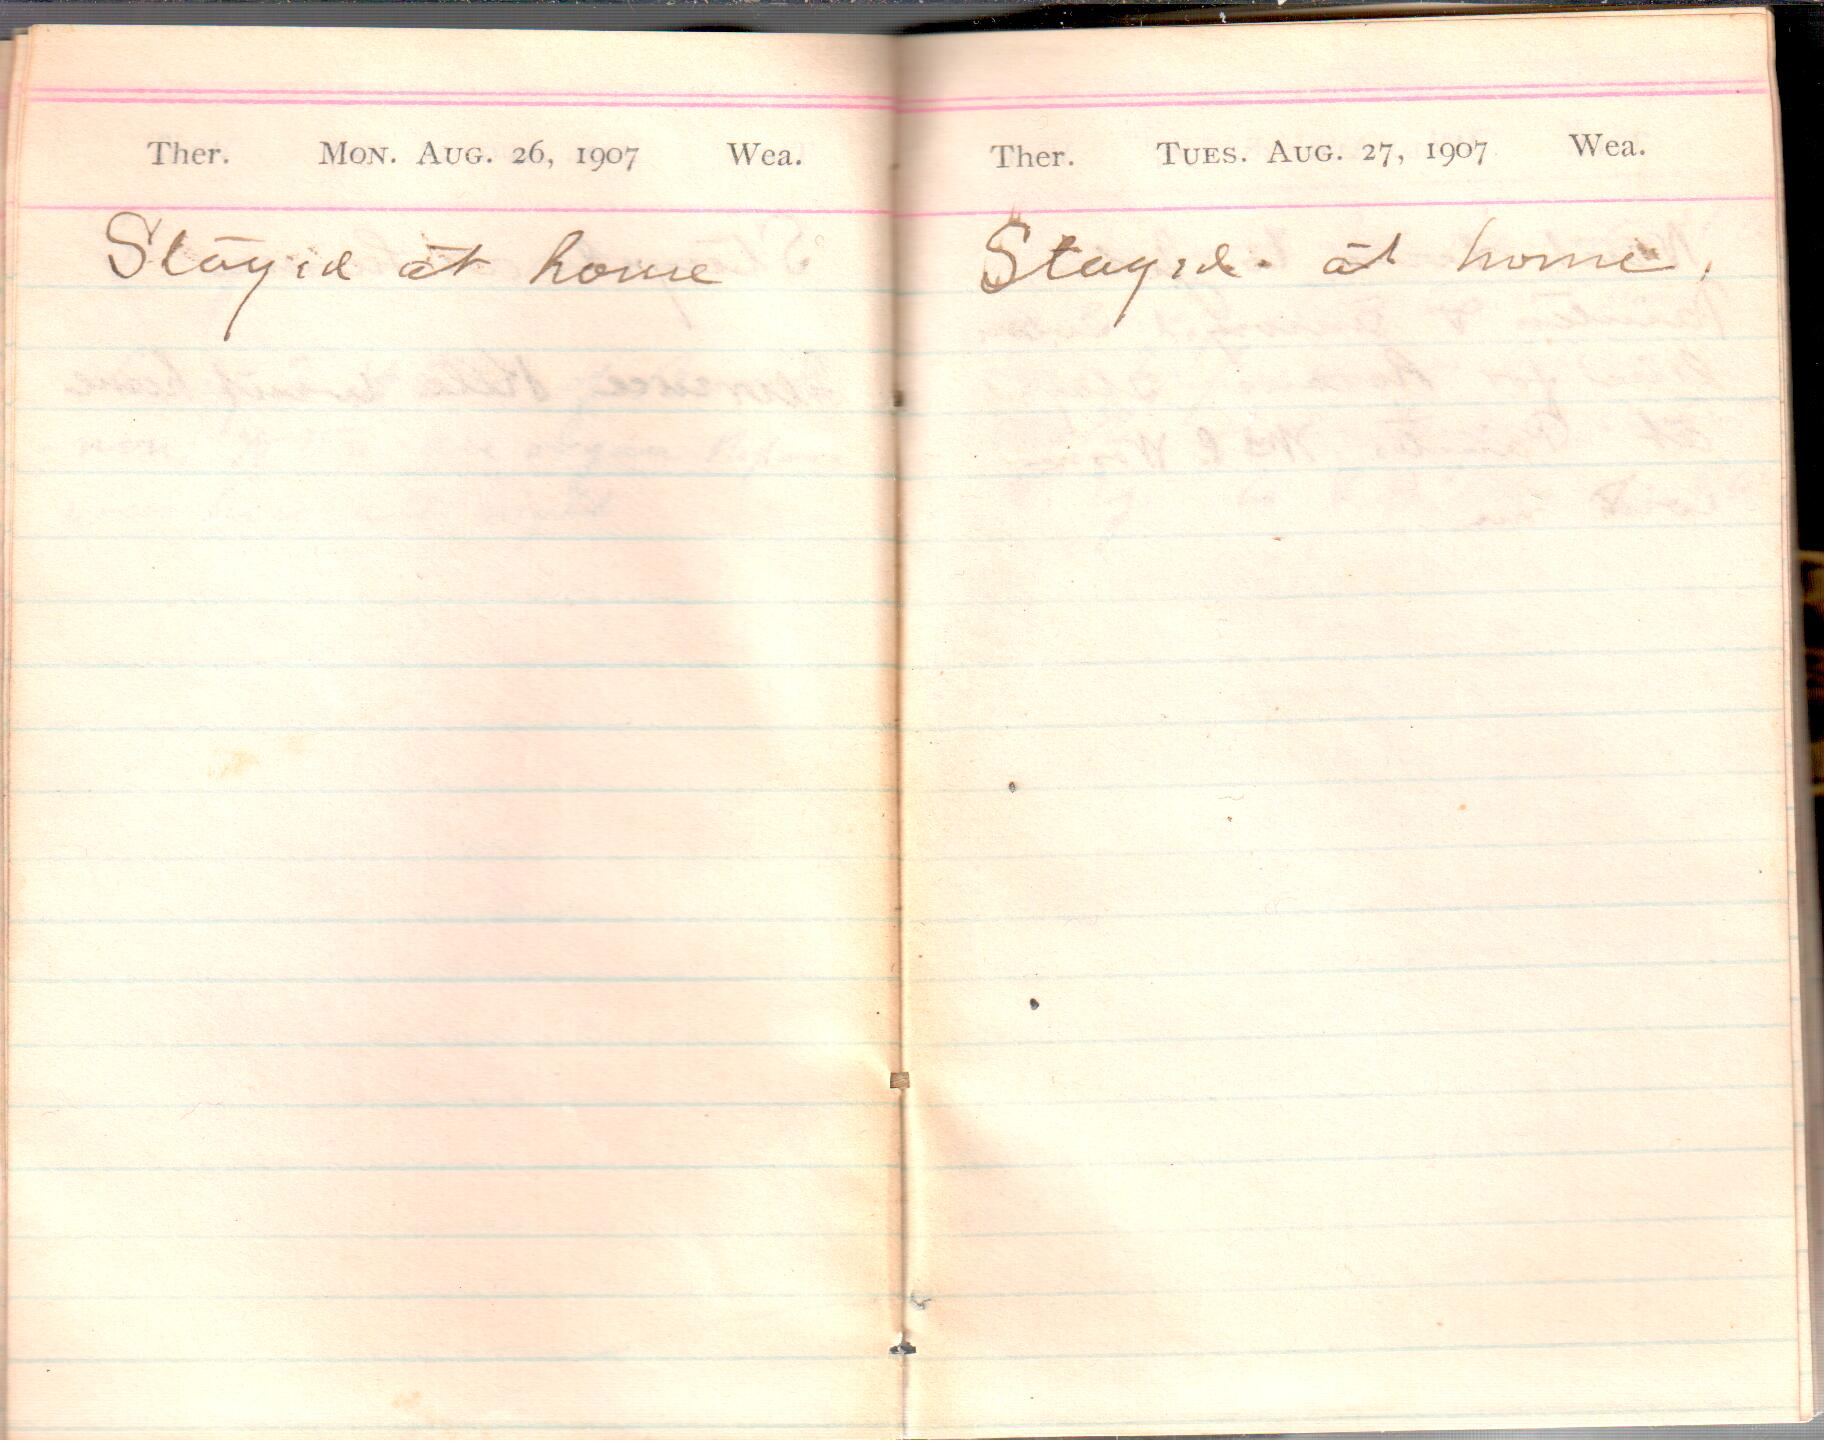 Ther. Mon. Aug. 26, 1907 Wea.
Stayed at home
Ther. Tues. Aug. 27, 1907 Wea.
Stayed. at home.